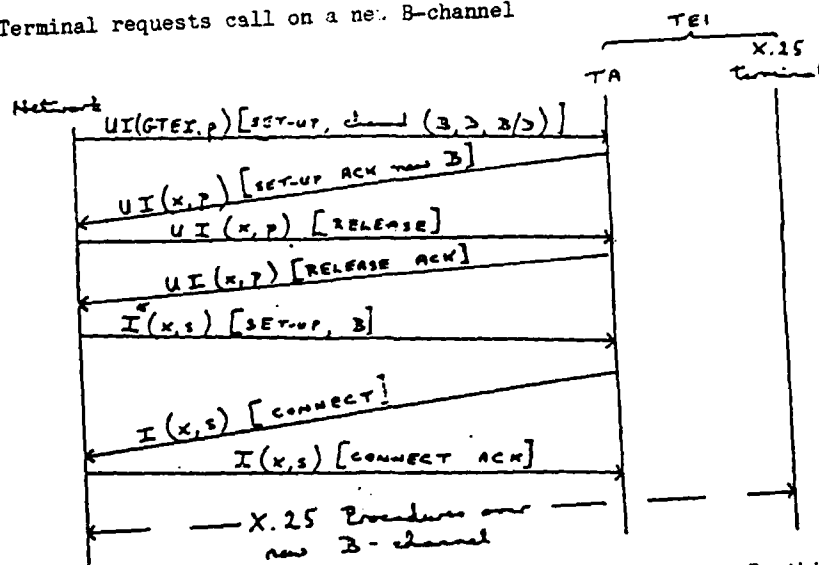 Terminal requests call on a new B-channel
TE1
X.25
TA
Terminal
Network
UI(GTEI,p) [SET-UP, channel (B, D, B/D)]
UI(x,p) [SET-UP ACK new B]
UI(x,p) [RELEASE]
UI(x,p) [RELEASE ACK]
I*(x,s) [SET-UP, B]
I(x,s) [CONNECT]
I(x,s) [CONNECT ACK]
X.25 Procedures over
new B-channel